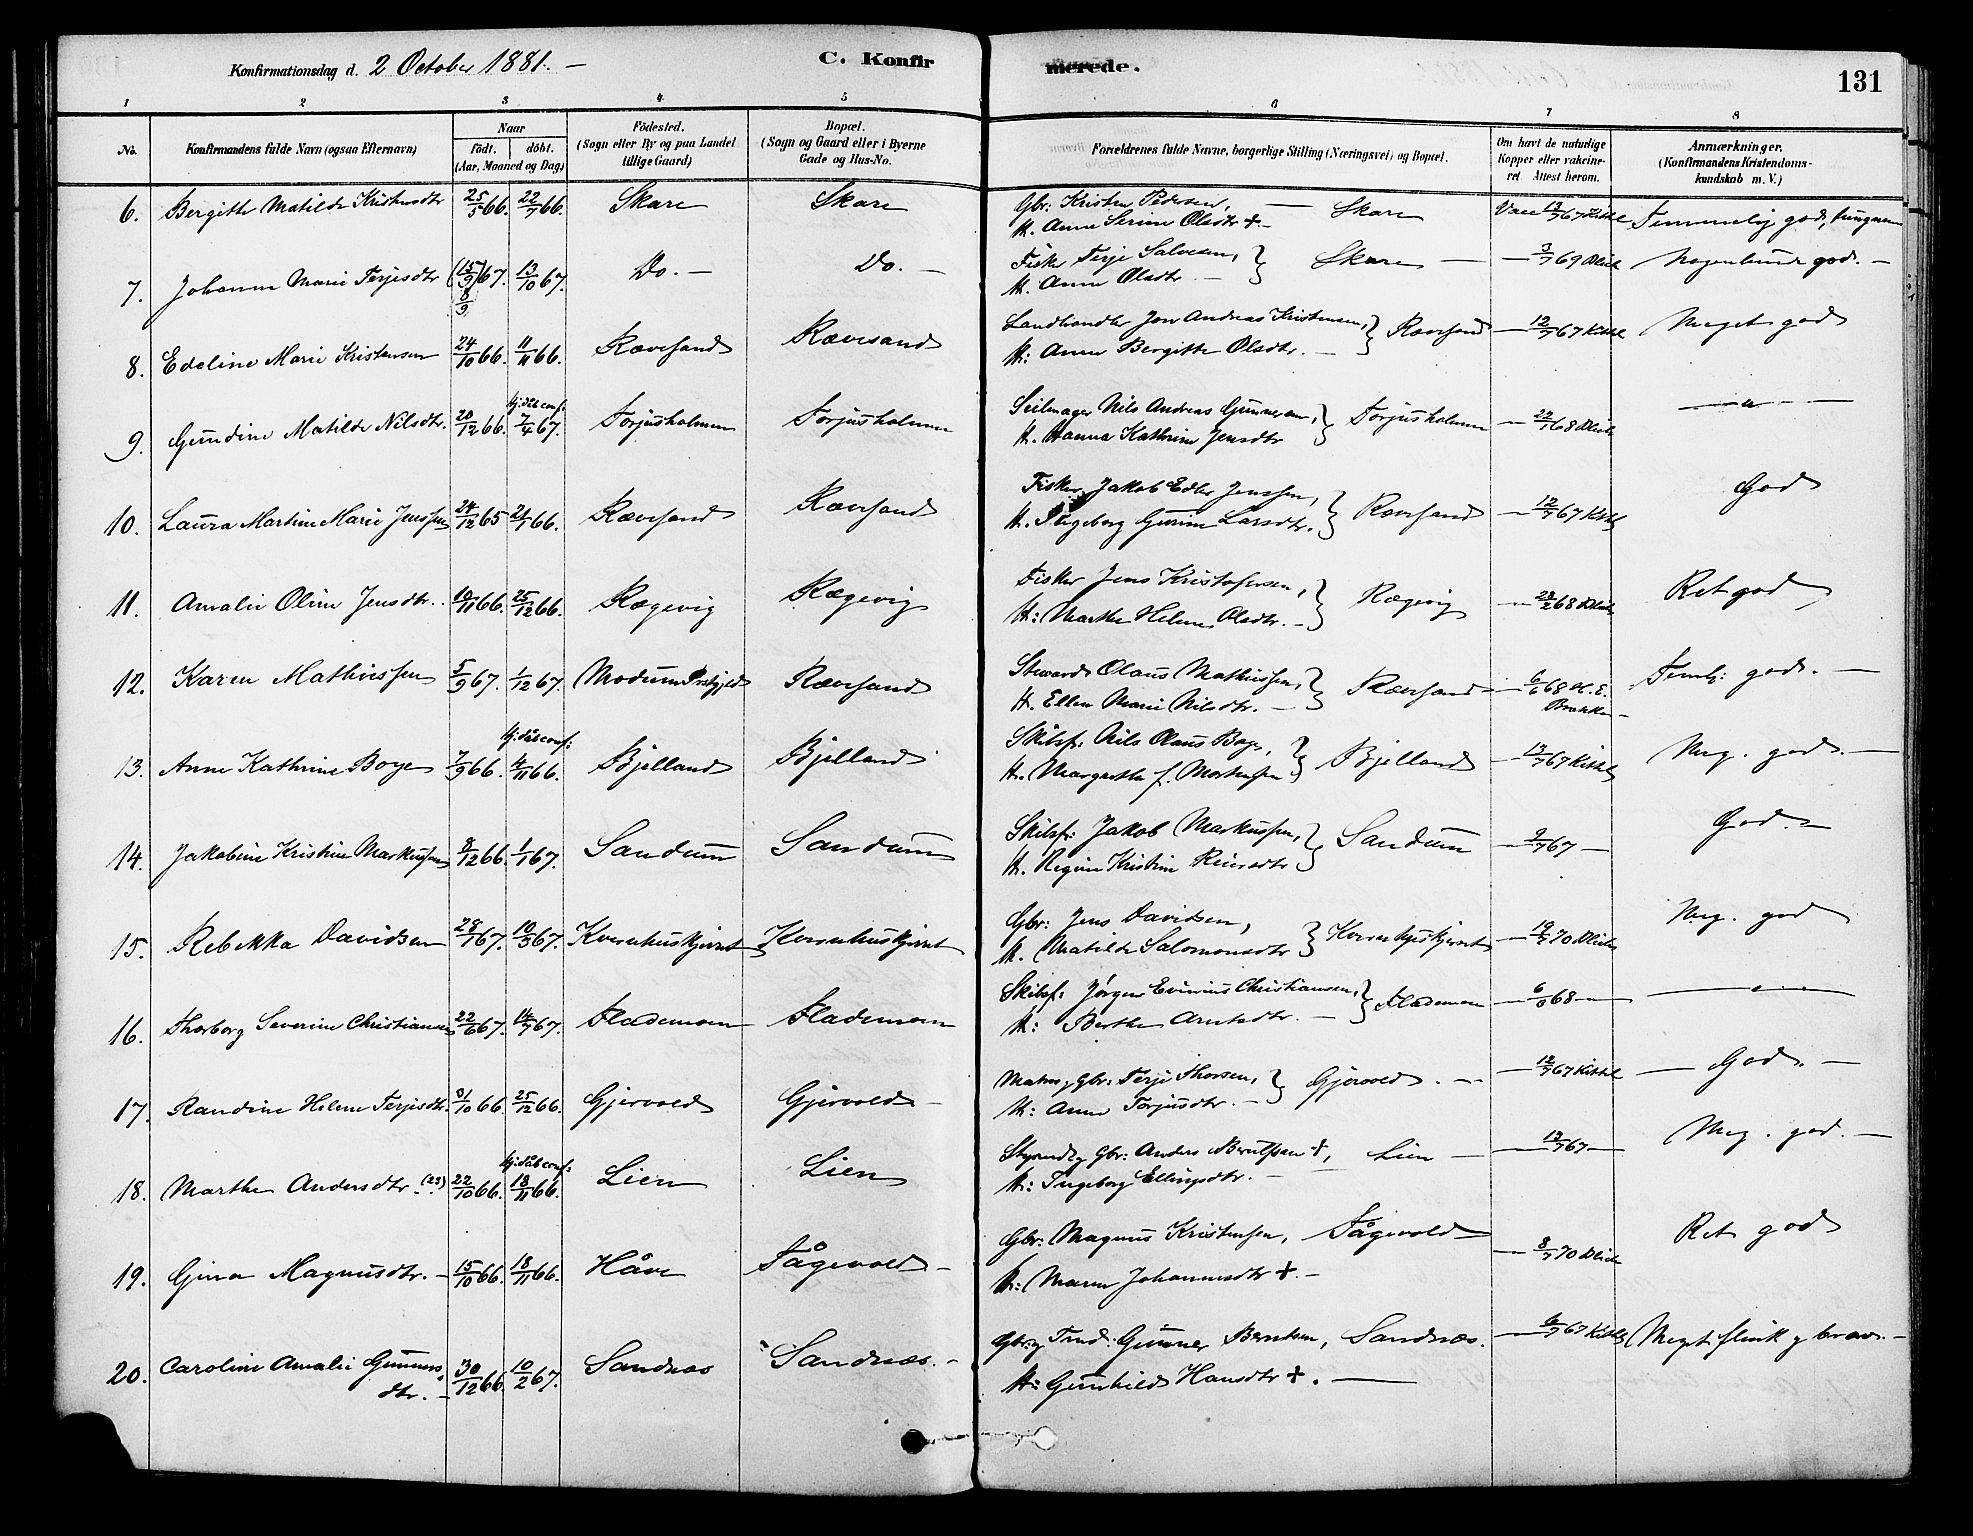 Konfirmationsdag d. 2 October 1881. –
C. Konfirmerede.
131
1 2 3 4 5 6 7 8
No.
Konfirmandens fulde Navn (ogsaa Efternavn)
Naar
Födt, döbt.
(Aar, Maaned og Dag)
Födested.
(Sogn eller By og paa Landet
tillige Gaard)
Bopæl.
(Sogn og Gaard eller i Byerne
Gade og Hus-No.
Forældrenes fulde Navne, borgerlige Stilling (Næringsvei) og Bopæl.
Om havt de naturlige
Kopper eller vakcine-
ret. Attest herom.
Anmærkninger.
(Konfirmandens Kristendoms-
kundskab m. V.)
6. Bergitte Matilde Kristensdtr 25/5 66. 22/7 66. Skare Skare Gbr: Kristen Pedersen, — Skare Vacc 13/7 67 Kittel Temmelig god,
H. Anne Serine Olsdtr +.–
7. Johanne Marie Terjesdtr (15/9) 67. 13/10 67. Do. – Do. – Fisker Terje Salvesen, } Skare — 3/7 69 Nogenlunde god. –
8/9
H. Anne Olsdtr –
8. Edeline Marie Kristensen 24/10 66. 11/11 66. Rævesand Rævesand Landhandler Jens Andreas Kristensen, } Rævesand — 12/7 67 Kittel Meget god
H: Anne Bergitte Olsdtr. –
9. Gundine Matilde Nilsdtr. 20/12 66. Hj: dåb conf: 7/4 67. Torjusholmen Torjusholmen Seilmager Nils Andreas Gunnersen, } Torjusholmen — 22/1 68 —"—
H. Hanna Kathrine Jensdtr
10. Laura Martine Marie Jenssen 24/12 65 21/1 66. Rævesand Rævesand Fisker Jakob Edler Jenssen, } Rævesand — 12/7 67 Kittel God
H. Ingeborg Gurine Larsdtr.
11. Amalie Oline Jensdtr. 10/11 66. 25/12 66. Rægevig Rægevig Fisker Jens Kristofersen, } Rægevig — 28/2 68 Ret god
H: Marthe Helene Olsdtr. –
12. Karen Mathiessen 5/9 67. 1/12 67. Modum Prstgjeld Rævesand Steward Olaus Mathiessen, } Rævesand — 6/6 68 Teml: god. –
H. Ellen Marie Nilsdtr. –
13. Anne Kathrine Boye 7/9 66. Hj: dåb conf: 4/11 66. Bjelland Bjelland Skibsf: Nils Olaus Boye, } Bjelland — 13/7 67 Kittel Meg. god. –
H. Margarethe f. Mortensen
14. Jakobine Kristine Markussen 8/12 66. 1/1 67. Sandum Sandum Skibsf: Jakob Markussen, } Sandum — 9/7 67 — God. –
H. Regine Kristine Reiersdtr
15. Rebekka Davidsen 28/1 67. 10/3 67. Kvernhuskjærret Kvernhuskjærret Gbr: Jens Davidsen, } Kvernhuskjerret — 19/7 70 Meg. god
H. Matilde Salomonsdtr
16. Thorborg Severine Christiansen 22/6 67. 14/7 67. Flademoen Flademoen Skibsf: Jörgen Evinius Christiansen, } Flademoen — 68 — —"—
H: Berthe Arntsdtr. –
17. Randine Helene Terjesdtr. 31/10 66. 25/12 66. Gjervold Gjervold – Matros, Gbr: Terje Thorsen, } Gjervold. — 12/7 67 Kittel — God. –
H: Anne Torjusdtr. –
18. Marthe Andersdtr (23) 22/10 66. Hj: dåb conf: 18/11 66. Lien Lien Styrmd. og Gbr: Anders Berntssen +, Lien — 12/7 67 — Meg. god. –
H: Ingeborg Ellingsdtr. –
19. Gina Magnusdtr. – 15/10 66. 18/11 66. Håve Fågevold – Gbr: Magnus Kristensen, Fågevold — 8/7 70 Ret god
H: Maren Johannesdtr +. –
20. Caroline Amalie Gunners- 30/12 66. 10/2 67. Sandnæs Sandnæs. – Gbr. og Gunner Berntsen, Sandnæs. — 6/7 67 Kittel Meget flink og brav. –
dtr. –
H: Gunhild Hansdtr +. —